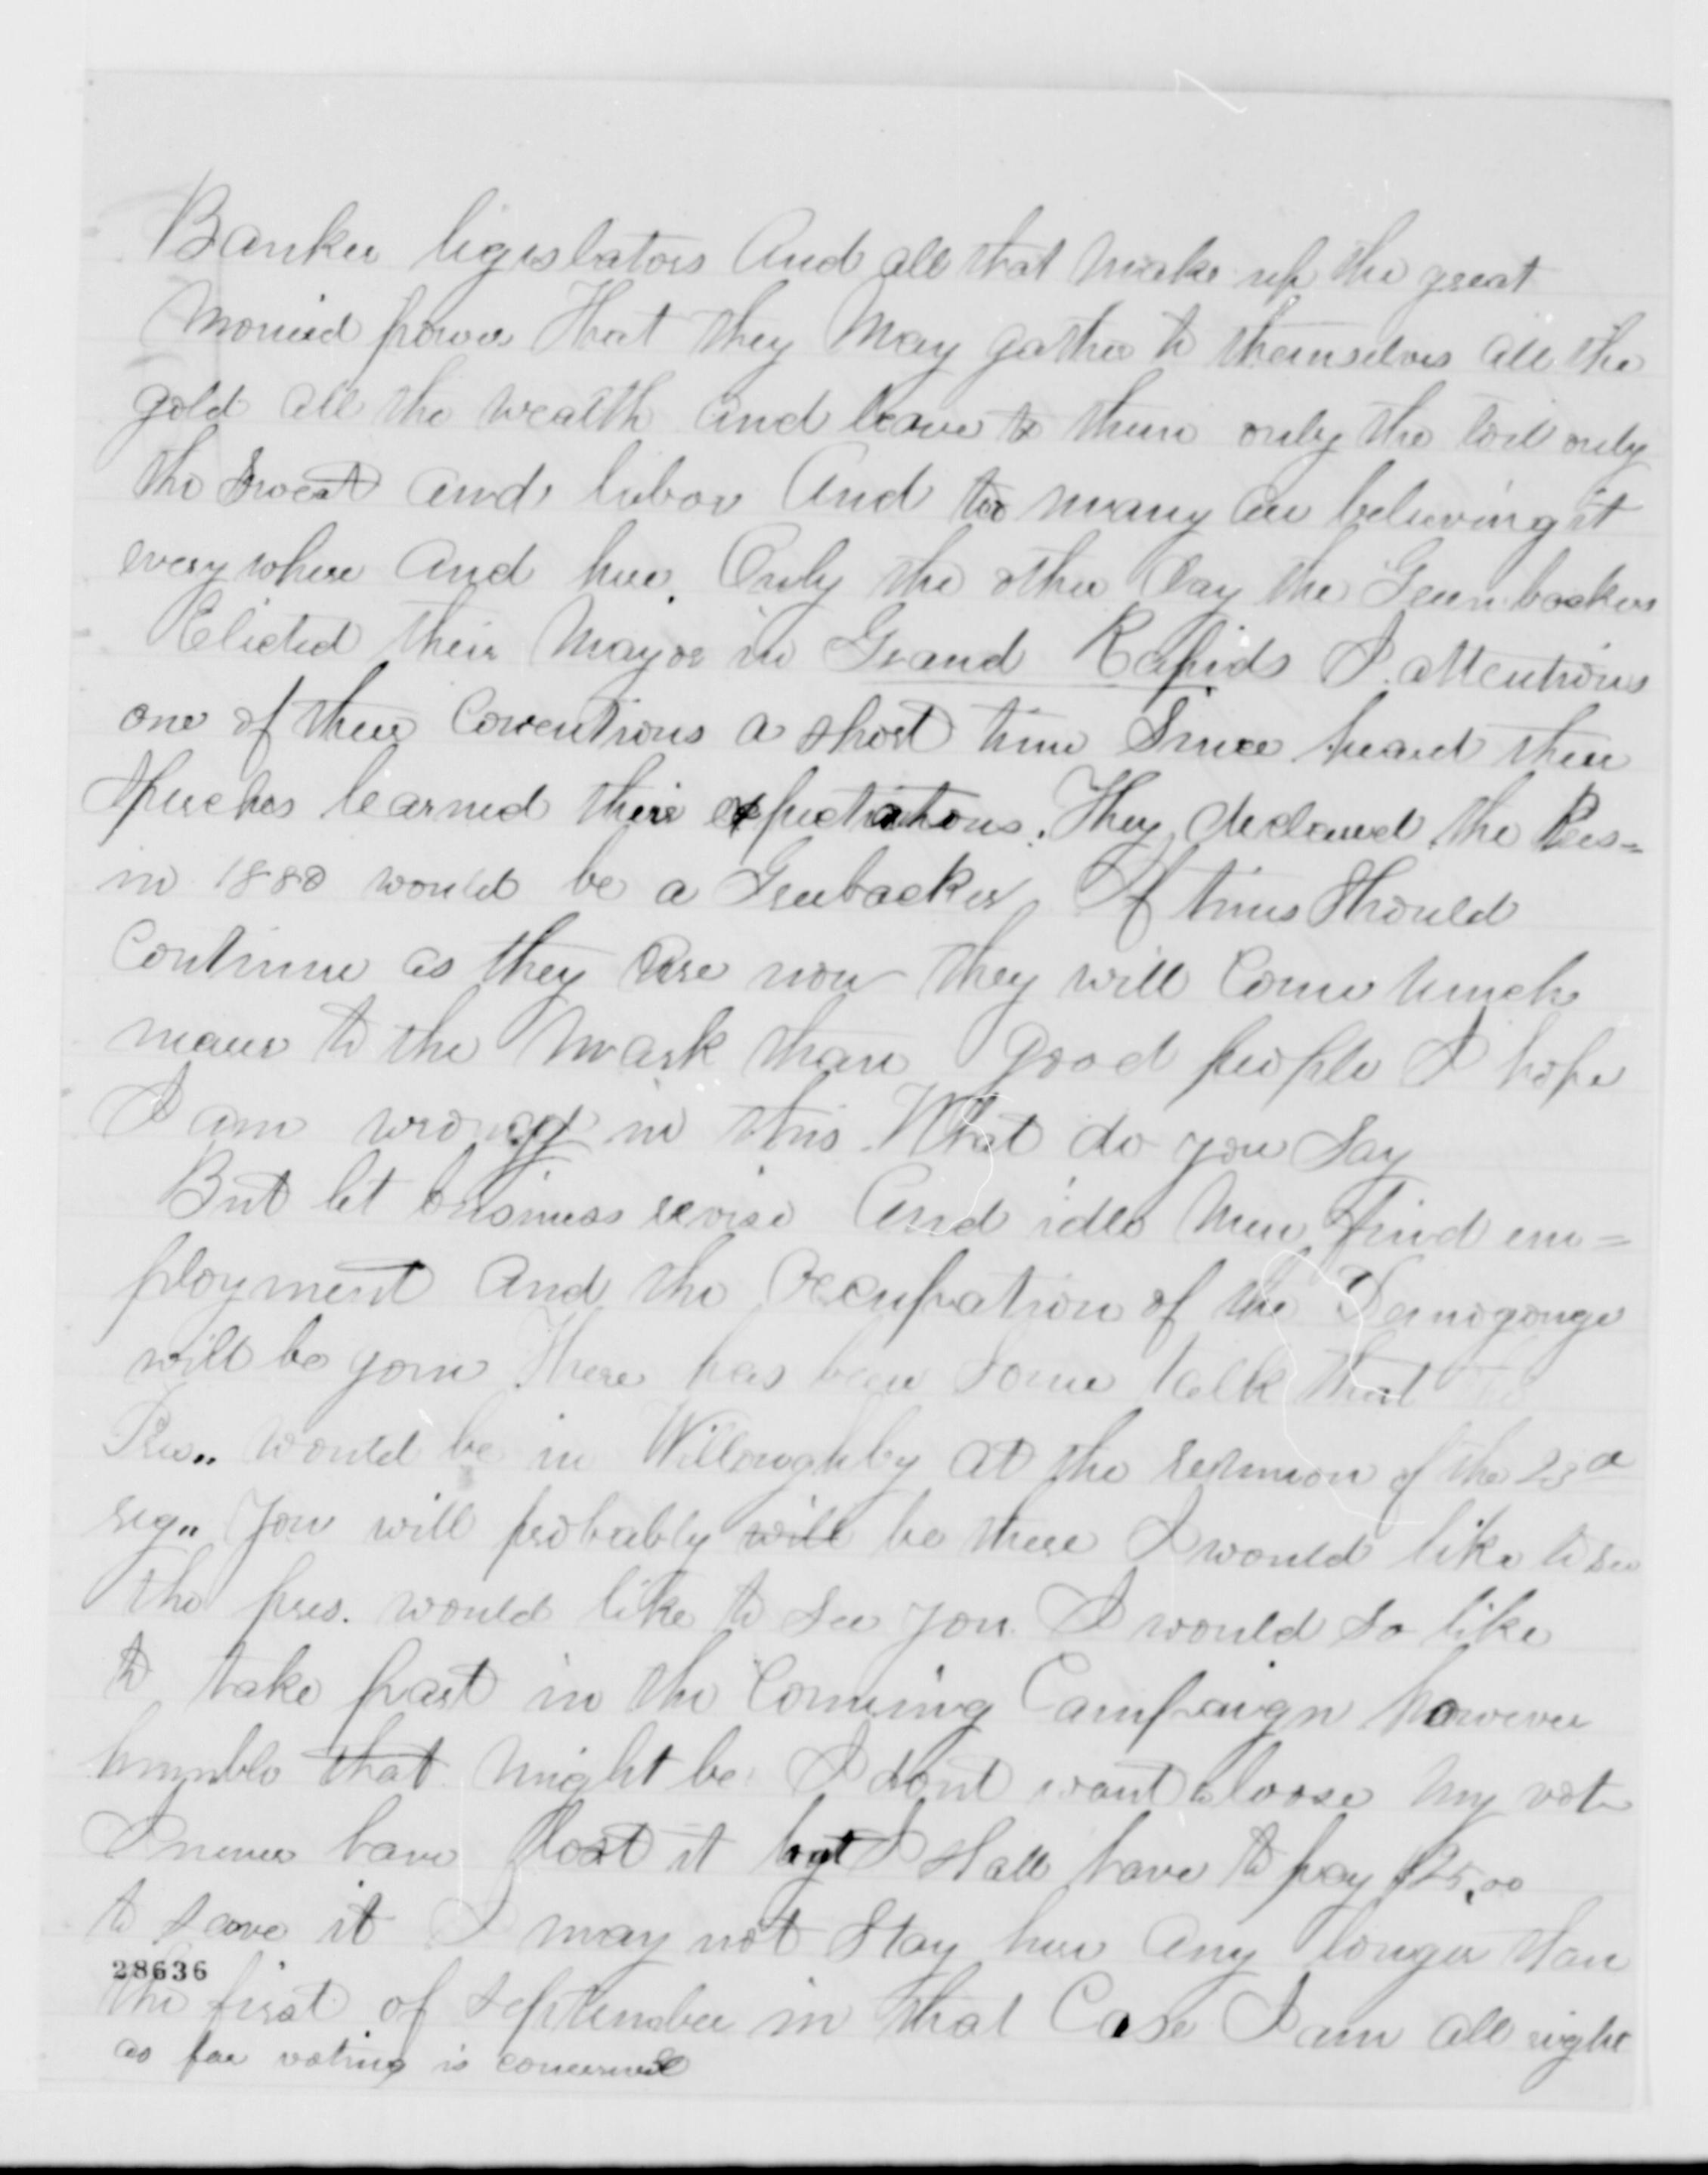 Banker legislators And all that make up the great
Monied power That they May gather to themselves all the
gold all the wealth and leave to them only the toil only
the sweat and labor And too many are believing it
every where And here. Only the other day the Greenbackers
Elected their Mayor in Grand Rapids I attentions
one of their Conventions a short time Since heard their
speeches learned their expectations. They declared the Pres=
in 1880 would be a Greebacker If times Should
Continue as they are now they will Come much
nearer to the mark than good people I hope
I am wrong in this. What do you Say
But let business revise And idle Men find em=
ployment and the Occupation of the Demogouge
will be gone There has been Some talk that
Pres.. would be in Willoughby at the reunion of the 23d
reg.. You will probably will be there I would like to see
the pres. would like to see you. I would so like
to take part in the Comming Campaign however
humble that might be I dont want to loose my vote
I never have lost it but I shall have to pay $25.00
to save it I may not Stay here any longer than
28636
the first of September in that Case I am all right
as far voting is concerned